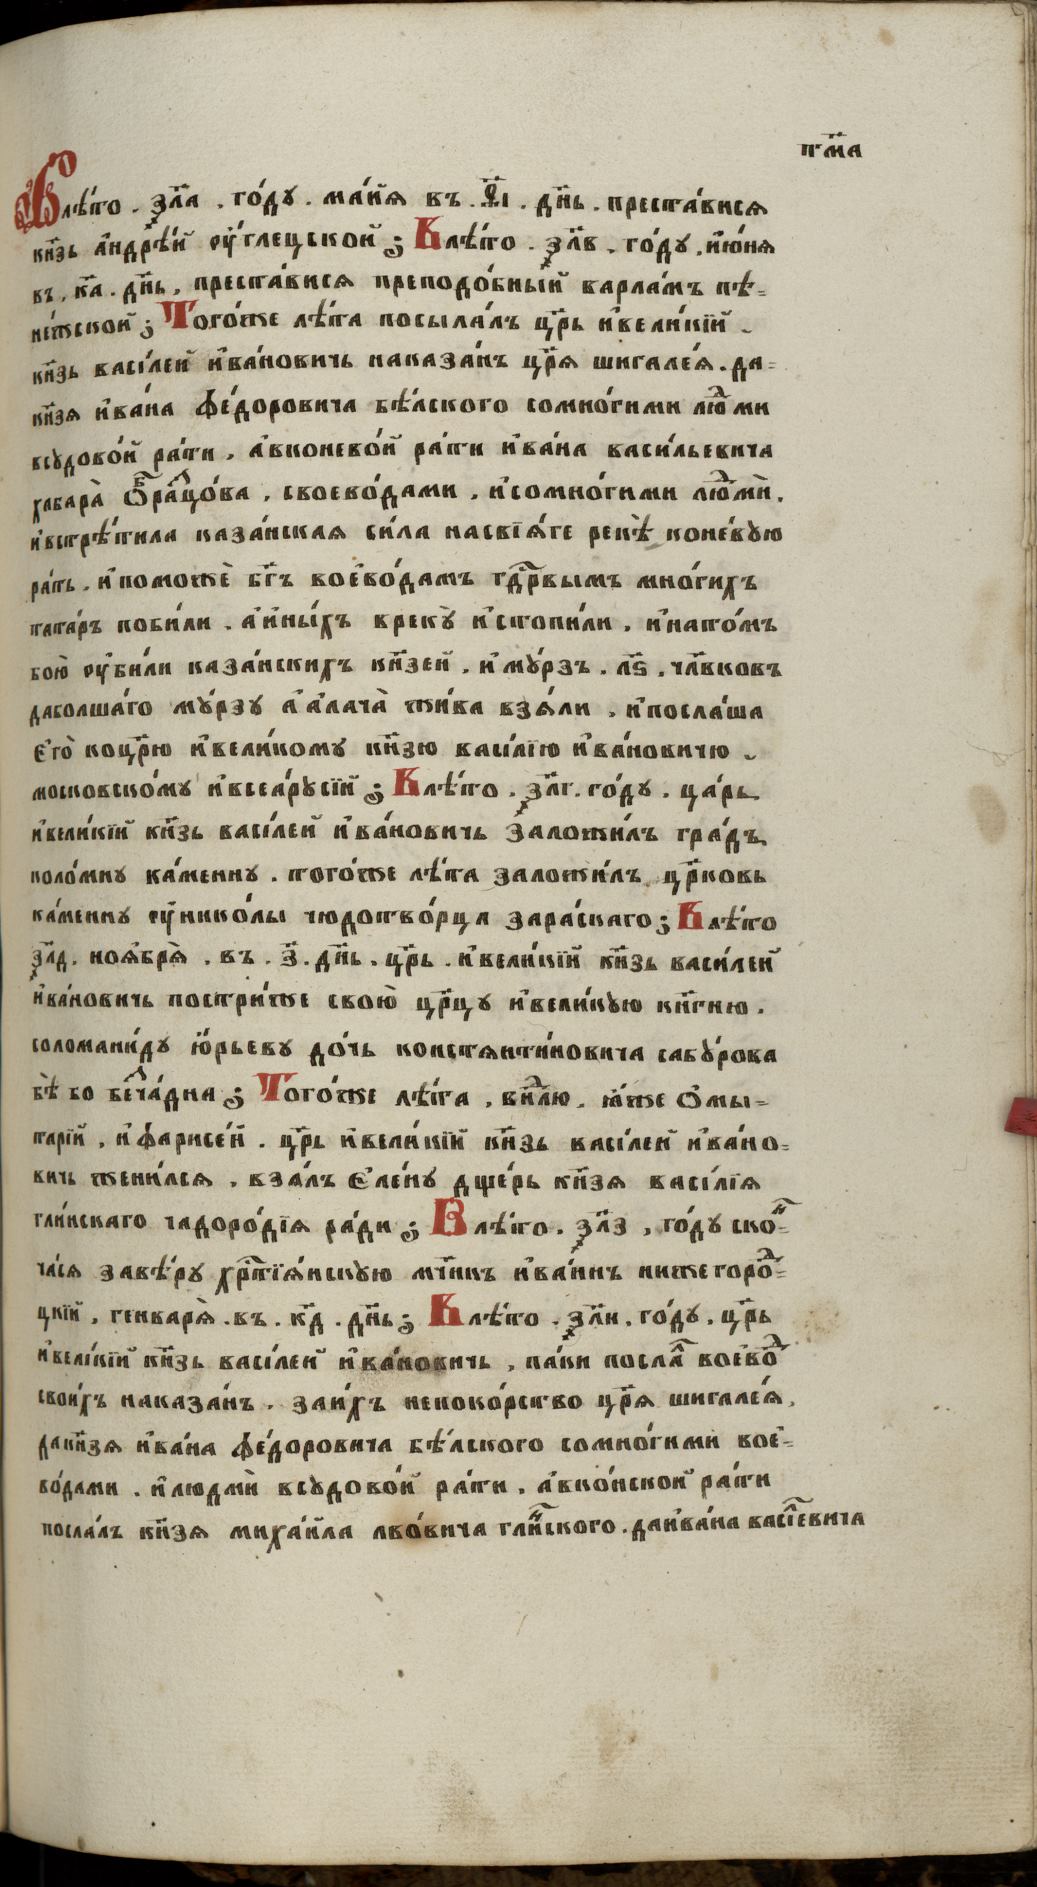 рма
Влѣто . ҂зл҃а . го́дꙋ . ма́йѧ въ . ѳ҃і . дн҃ь . преста́висѧ
кн҃зь а҆ндрѣ́й ѹ҆глецьской ; Влѣ́то . ҂зл҃в . го́дꙋ . и҆ю́нѧ
въ . к҃а . дн҃ь . преста́висѧ преподо́бный варлаа́мъ пѣ-
нежской ; Того́же лѣ́та посыла́лъ цр҃ь и҆вели́кїй
кн҃зь васі́лей и҆ва́новичь наказа́нь цр҃ѧ шигале́ѧ . да-
кн҃зѧ и҆ва́на ѳе́доровича бѣ́лского сомно́гими люⷣми
всꙋдово́й ра́ти , а҆вконево́й ра́ти и҆ва́на васи́льевича
хабара̀ ѻ҆браⷥцо́ва , своево́дами , и҆сомно́гими люⷣмѝ .
и҆встрѣ́тила каза́нская си́ла насвїѧ́ге рекѣ̀ коне́вꙋю
ра́ть . и҆поможѐ бг҃ъ воево́дамъ гдⷭ҇рвымъ мно́гихъ
тата́ръ поби́ли . а҆и҆ны́хъ врекꙋ̀ и҆стопи́ли , и҆нато́мъ
бою̀ ѹ҆би́ли каза́нскихъ кн҃зей , и҆мꙋ́рзъ . л҃ѕ . чл҃вковъ
даболша́го мꙋ́рзꙋ а҆а҆лача̀ жи́ва взѧ́ли , и҆посла́ша
є҆го̀ коцр҃ю и҆вели́комꙋ кн҃зю васі́лїю и҆ва́новичю
московско́мꙋ и҆всеа́рꙋсїй ; Влѣ́то . ҂зл҃г . го́дꙋ . ца́рь
и҆вели́кїй кн҃зь васі́лей и҆ва́новичь заложи́лъ гра́дъ
коло́мнꙋ ка́меннꙋ . того́же лѣ́та заложи́лъ цр҃ковь
ка́меннꙋ ѹ҆нико́лы чюдотво́рца зара́скаго ; Влѣ́то
҂зл҃д . ноѧ́брѧ̀ . въ . з҃ . дн҃ь . цр҃ь . и҆вели́кїй кн҃зь васи́лей
и҆ва́новичь постри́же свою̀ цр҃цꙋ и҆вели́кꙋю кн҃гню .
соломани́дꙋ ю҆́рьевꙋ до́чь констѧнти́новича сабꙋ́рова
бѣ̀ бо беⷥча́дна ; Того́же лѣ́та , внⷣлю . ꙗ҆́же ѡмы-
тарїй , и҆фарисе́й . цр҃ь и҆вели́кїй кн҃зь васі́лей и҆ва́но-
вичь жени́лсѧ , взѧ́лъ є҆ле́нꙋ дще́рь кн҃зѧ васі́лїѧ
гли́нскаго чадоро́дїѧ ра́ди ; Влѣ́то . ҂зл҃з , го́дꙋ скоⷩ-
ча́сѧ завѣ́рꙋ хрⷭ҇тїѧ́нскꙋю мч҃нкъ и҆ва́ннъ нижегороⷣ-
цкїй , генварѧ̀ . въ . к҃д . дн҃ь ; Влѣ́то . ҂зл҃и . го́дꙋ . цр҃ь
и҆вели́кїй кн҃зь васі́лей и҆ва́новичь , па́ки послаⷧ воевоⷣ
свои́хъ наказа́нь . заи́хъ непоко́рство цр҃ѧ шигале́ѧ ,
дакн҃зѧ и҆ва́на ѳе́доровича бѣ́лского сомно́гими вое-
во́дами . и҆людмѝ всꙋдово́й ра́ти . а҆вко́нской ра́ти
посла́лъ кн҃зѧ миха́йла лво́вича глиⷩского . даи҆ва́на васи́ⷧевича